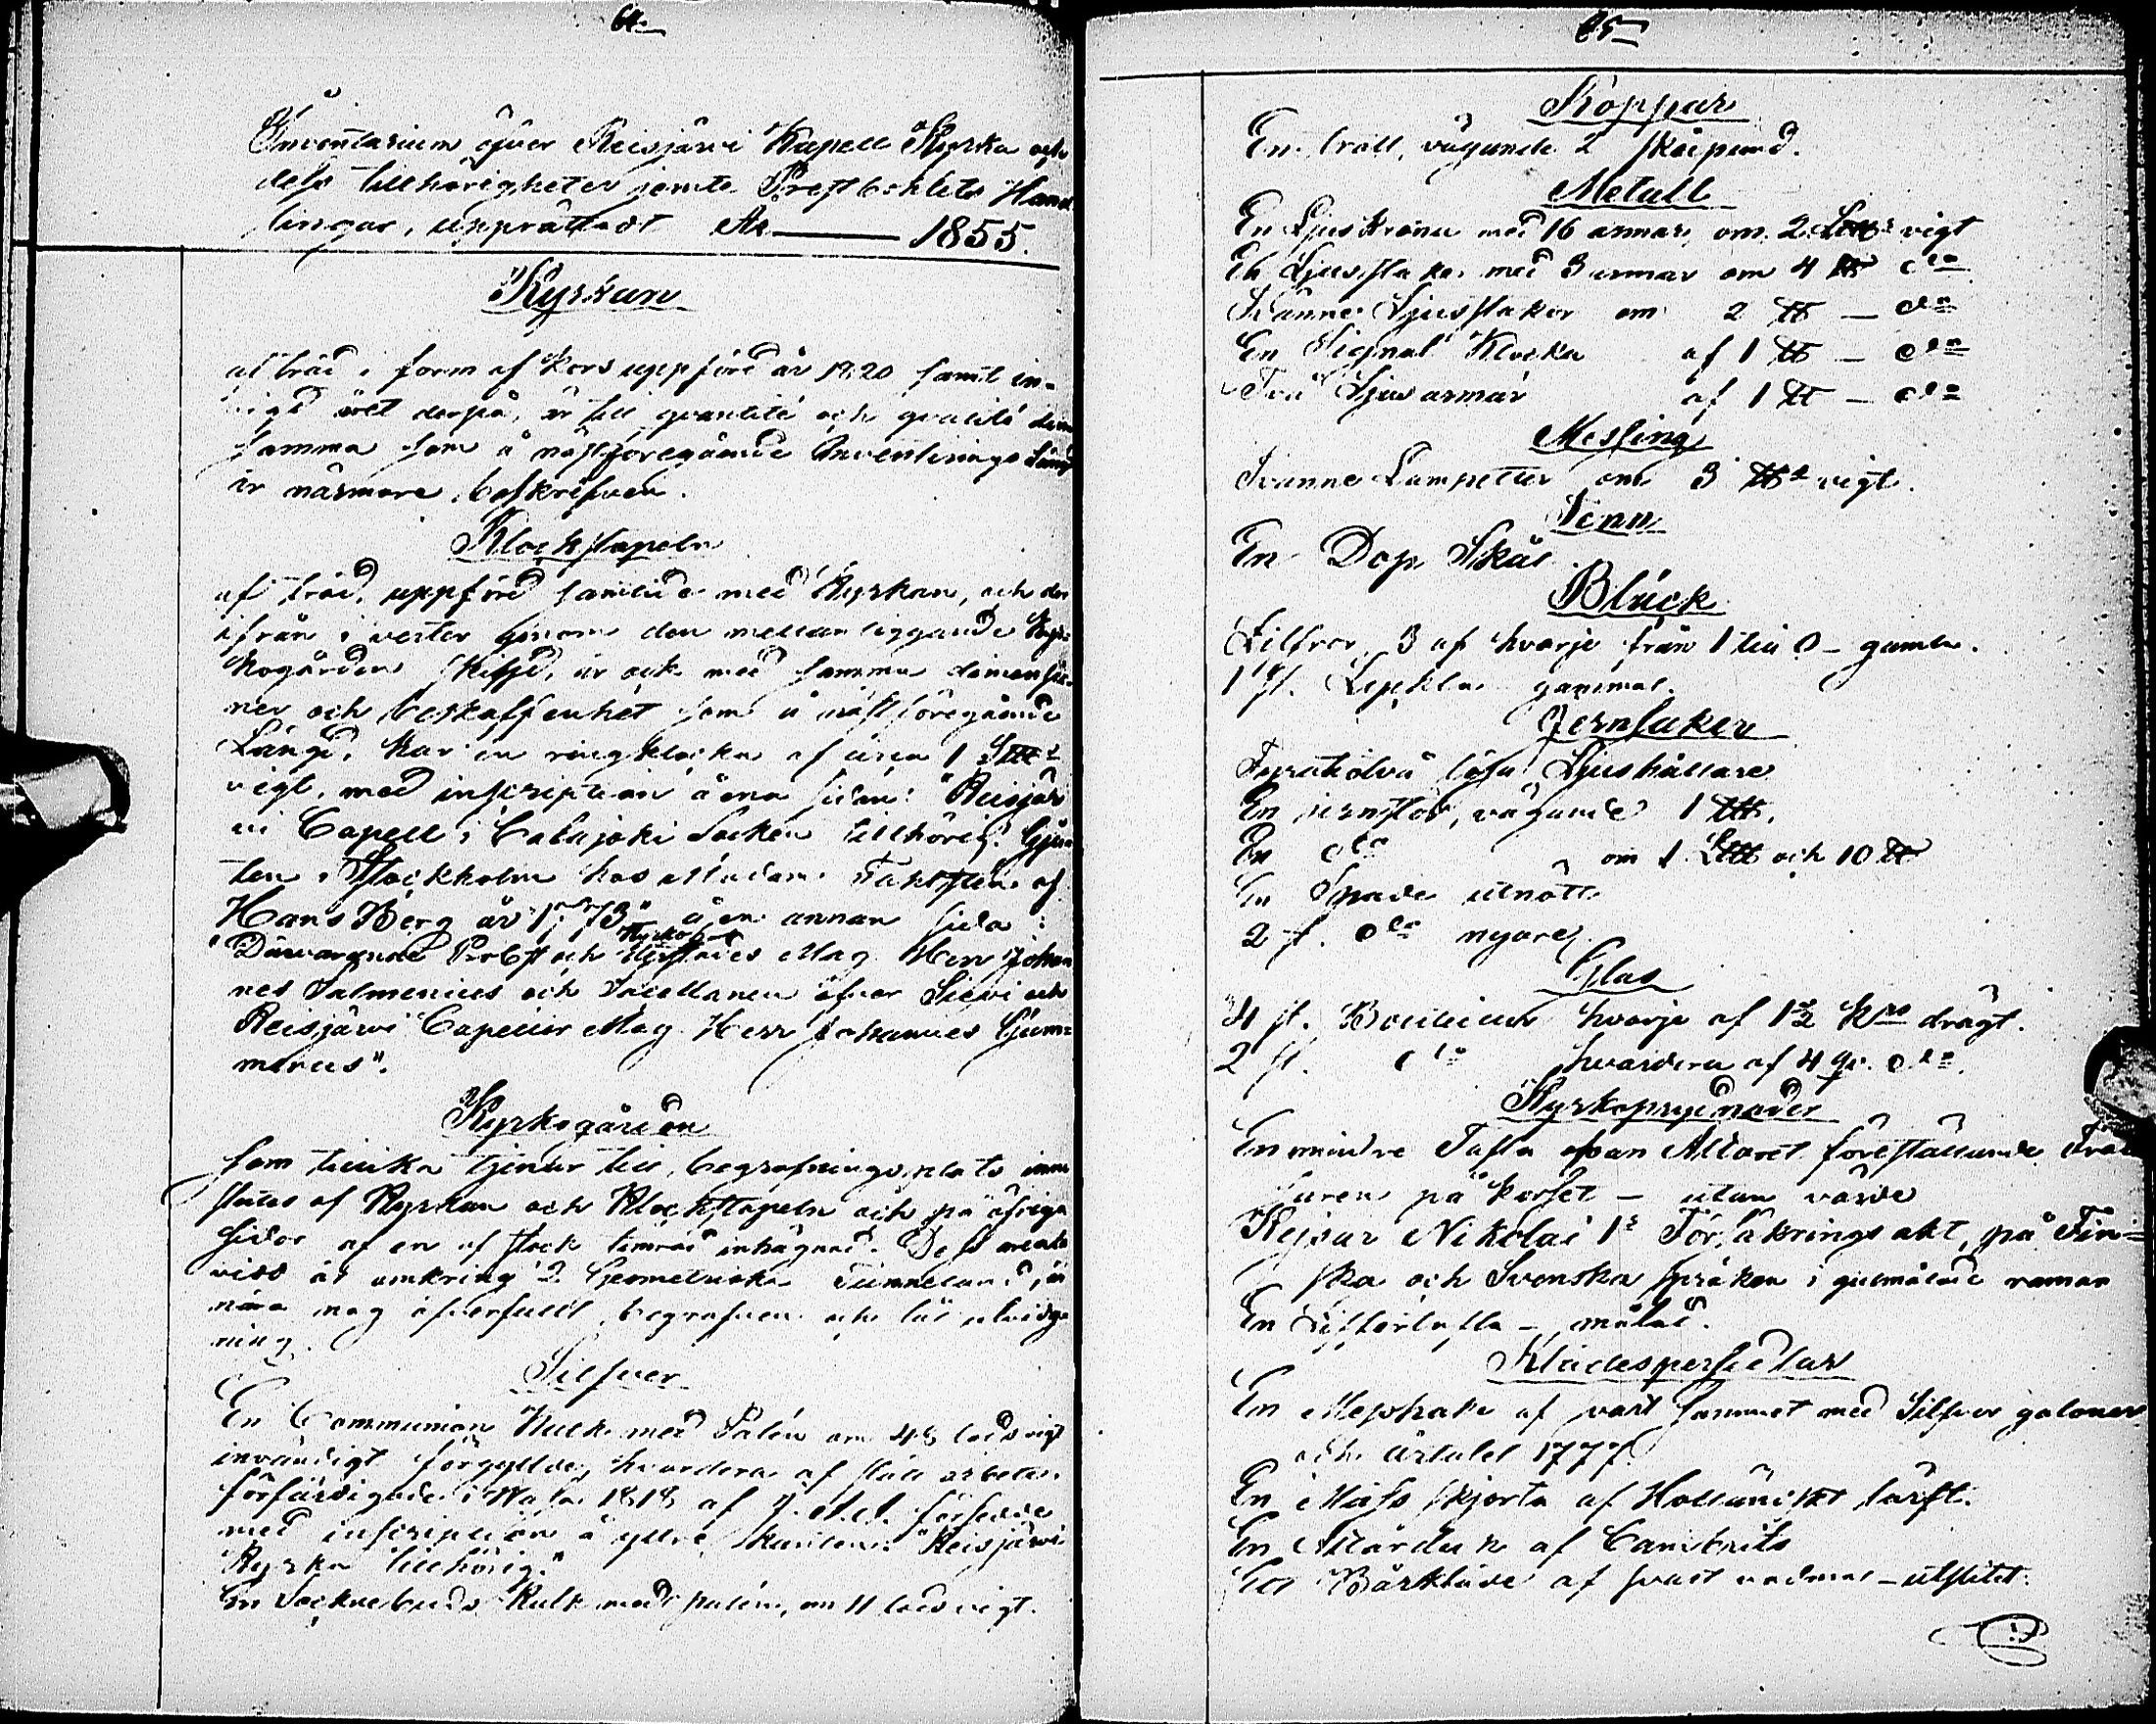 64.
Inventarium öfver Reisjärvi Kapell Kyrka och
dess tillhörigheter jemte Prestbohlets Hand-
lingar, upprättadt År 1855.
Kyrkan
af träd i form af kors uppförd år 1820 samt in-
vigd året derpå, är till quantité och qvalité den
samma som å nästföregående Inventarings Längd
är närmare beskrifven.
Klockstapeln
af träd, uppförd samtida med Kyrkan, och der
ifrån i vester genom den mellanliggande Kyr-
kogården skiljd, är ock med samma dimensio-
ner och beskaffenhet som å nästföregående
Längd, har en ringklocka af circa 1 
vigt, med inscription å ena sidan: "Reisjär
vi Capell i Calajoki Socken tillhörig. Gju-
ten i Stockholm hos afledne Fahlsten af
Hans Berg år 1773" å en annan sida:
"Dåvarande Probst och Kyrkoh Mag. Herr Johan
nes Salmenius och Sacellanen öfver Sievi och
Reisjärvi Capeller Mag. Herr Johannes Gum-
merus".
Kyrkogården
som tillika tjenar till begrafningsplats inne
slutes af Kyrkan och Klockstapeln och på öfriga
sidor af en af stock timrad inhägnad. Dess areala
vidd är omkring 2 Geometriska Tunneland, är
nära nog öfverfullt begrafven och tål utvidg-
ning.
Silfver
En Communion Kalk med Patén om 48 lods vigt
invändigt förgyllde, hvardera af slätt arbete.
förfärdigade i Wasa 1818 af försedde
med inscription å yttre kanten: "Reisjärvi
Kyrka tillhörig."
En Socknebuds Kalk med patén, om 11 lods vigt.
65
Koppar
En brått, vägande 2 skeipund.
Metall
En Ljuskrona med 16 armar, om 2 vigt
En Ljusstake med 3 armar om 4 ℔ do
Tvänne Ljusstakar om 2 ℔ — do
En Signal Klocka af 1 ℔ — do
Två Ljusarmar af 1 ℔ — do
Messing
Tvänne Lampetter om 3 ℔s vigt.
Tenn
En Dop Skål.
Bläck
Ziffror, 3 af hvarje från 1 till 0 — gamla.
1 st. gammal.
Jernsaker
Fyratiotvå lösa Ljushållare
En jernstör, vägande 1 L℔.
En do om 1 L℔ och 10 ℔
En Spade utnött
2 st. do nyare
Glas
34 st. Bouteiller hvarje af 1½ dragt.
2 st. do hvardera af 4 do.
Kyrkoprydnader
En mindre Tafla ofvan Altaret föreställande Fräl
saren på korset — utan värde
Kejsar Nikolai 1s Försäkringsakt, på Fin-
ska och Svenska språken i gulmålade ramar
En Siffertafla — målad.
Klädespersedlar
En Messhake af svart sammet med Silfver galoner
och årtalet 1777.
En Mess skjorta af Holländskt lärft.
En Altarduk af Cambrits
Ett Bårkläde af svart vadmal — utslitet.